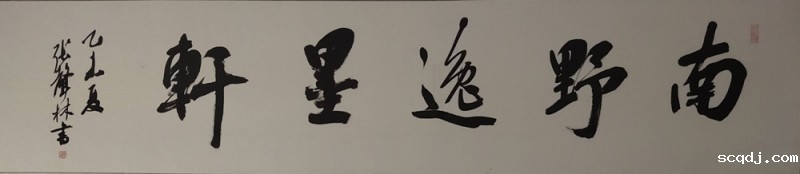 南野逸墨軒
乙未夏
張聲林書
scqdj.com